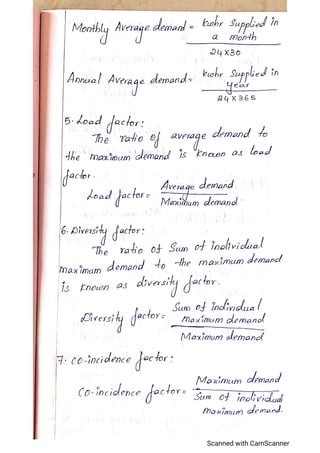 Monthly Average demand = kwhr Supplied in
a month
24 X30
Annual Average demand = kwhr Supplied in
year
24 X 365
5. Load factor:
The ratio of average demand to
the maximum demand is known as load
factor.
Load factor = Average demand
Maximum demand
6. Diversity factor:
The ratio of Sum of individual
maximum demand to the maximum demand
is known as diversity factor.
Diversity factor = Sum of individual
maximum demand
Maximum demand
7. Co-incidence factor:
Co-incidence factor = Maximum demand
Sum of individual
maximum demand.
Scanned with CamScanner